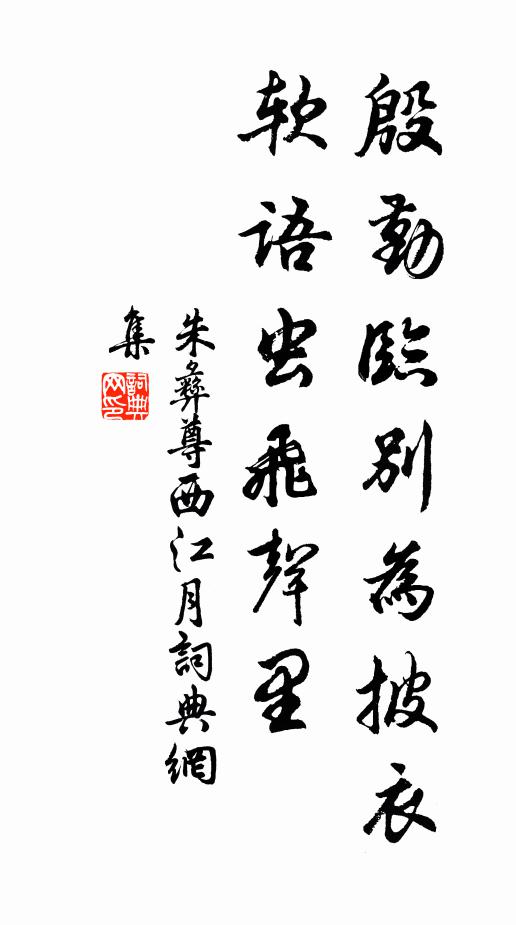 殷勤臨別為披衣
软語虫飛聲里
朱彝尊西江月詞典網
集
詞典网印